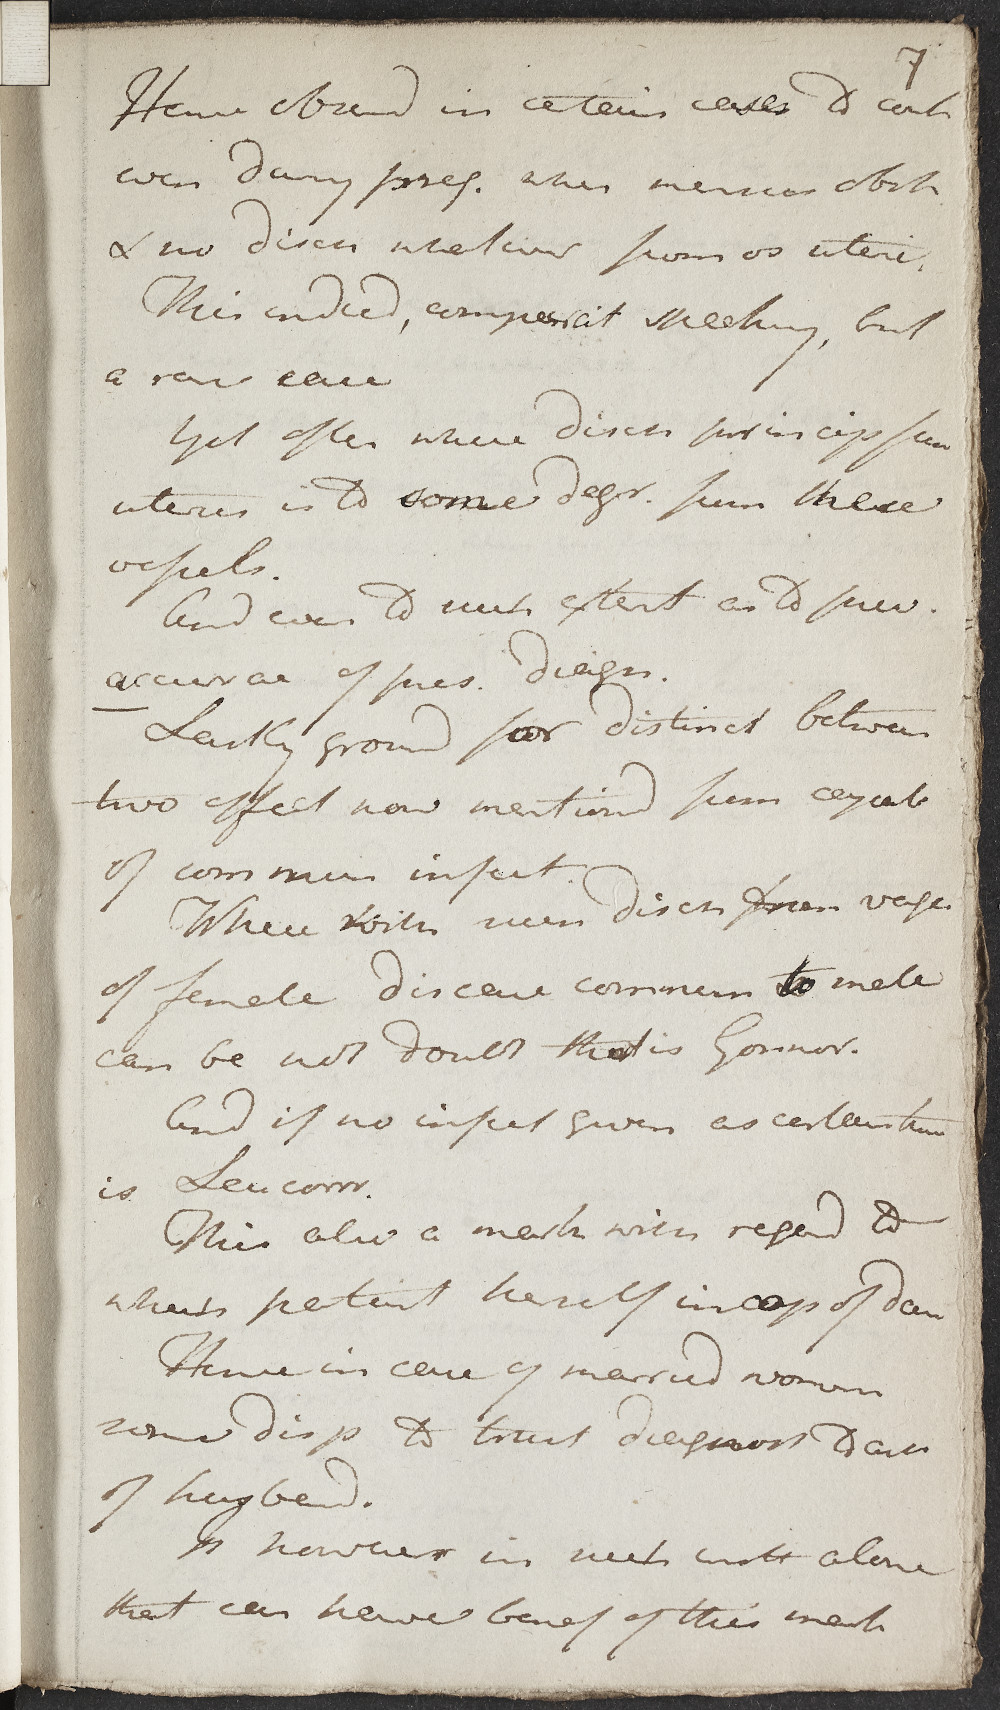 7
Hence observd in certain cases to cont
even during preg. when menses obstr
& no disch whatever from os uteri.
This indeed, comparat speaking, but
a rare case
Yet often where disch princip from
uterus is to some degr. from these
vessels.
And even to such extent as to prev.
accurac of pres. diagn.
Lastly ground for distinct between
two affect now mentiond from
of commun infect.
When with such disch from vagin
of female disease commun to male
can be not doubt that is Gonnor.
And if no infect given as certain that
is Leucorr.
This also a mark with regard to
which patient herself incap of
Hence in case of married women
some disp to trust diagnost to
of husband.
It however in such instt alone
that can have benef of this mark